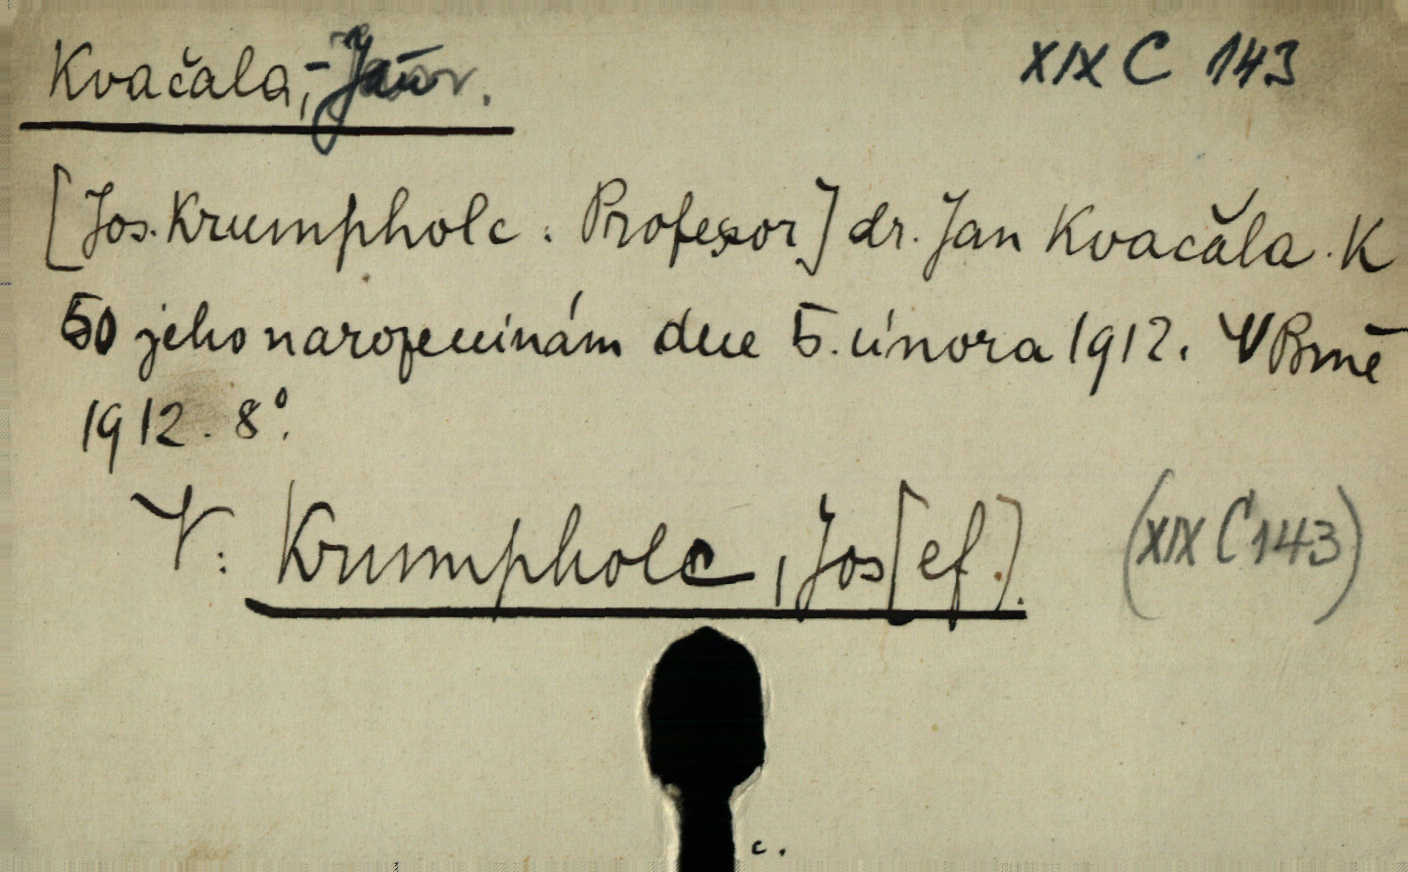 Kvačala, - Jan. XIX C 143
[Jos. Krumpholc : Profesor] dr. Jan Kvačala. K
50 jeho narozeninám dne 5. února 1912. V Brně
1912. 8°.
V: Krumpholc, Jos[ef.]. (XIX C 143)
c.